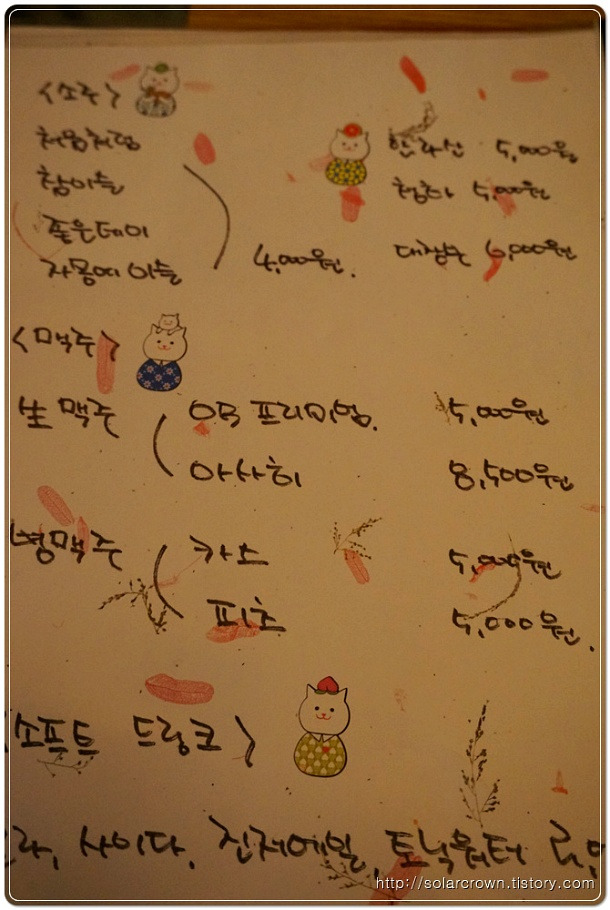 <소주>
처음처럼
참이슬
좋은데이
자몽에이슬
4,000원.
한라산 5,000원
청하 5,000원
대장부 6,000원
<맥주>
生맥주
OB 프리미엄.
5,000원
아사히
8,500원
병맥주
카스
5,000원
피츠
5,000원.
<소프트 드링크>
사이다, 진저에일, 토닉워터
http://solarcrown.tistory.com